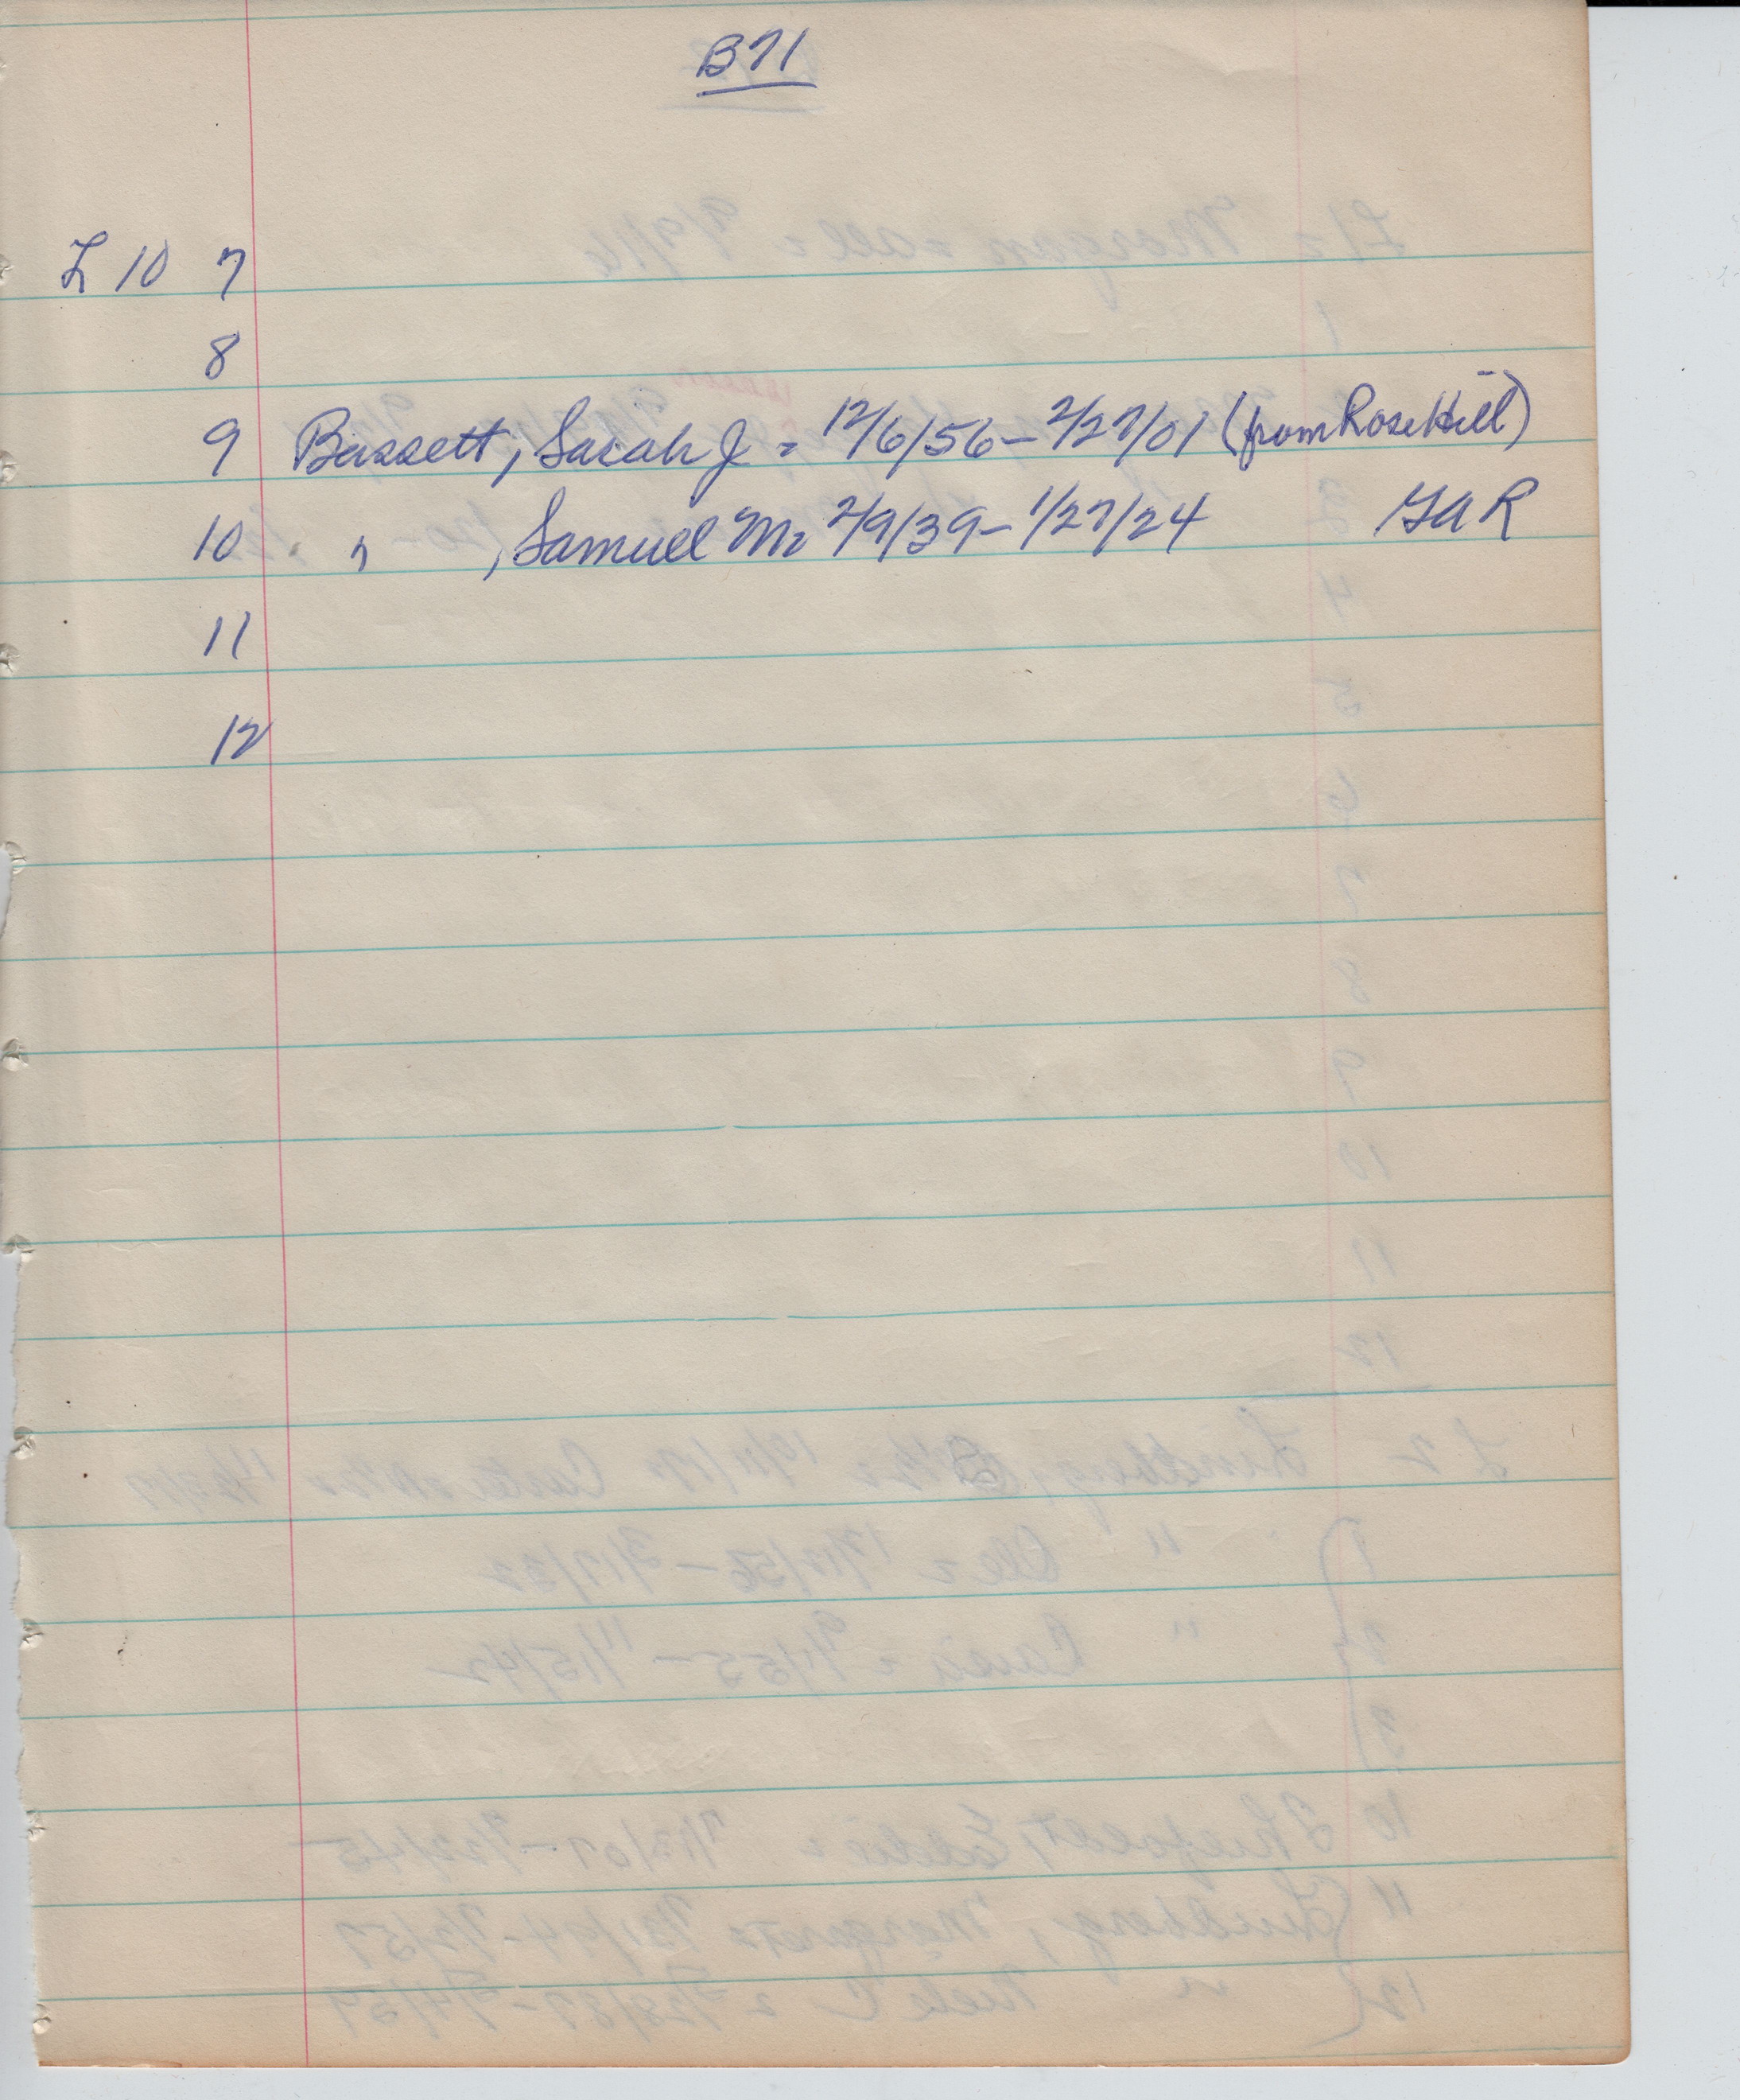 B71
L 10 7
8
9 Bassett, Sarah J = 12/6/56 - 2/27/01 (from Rose Hill)
10 " , Samuel M = 2/9/39 - 1/27/24 GAR
11
12